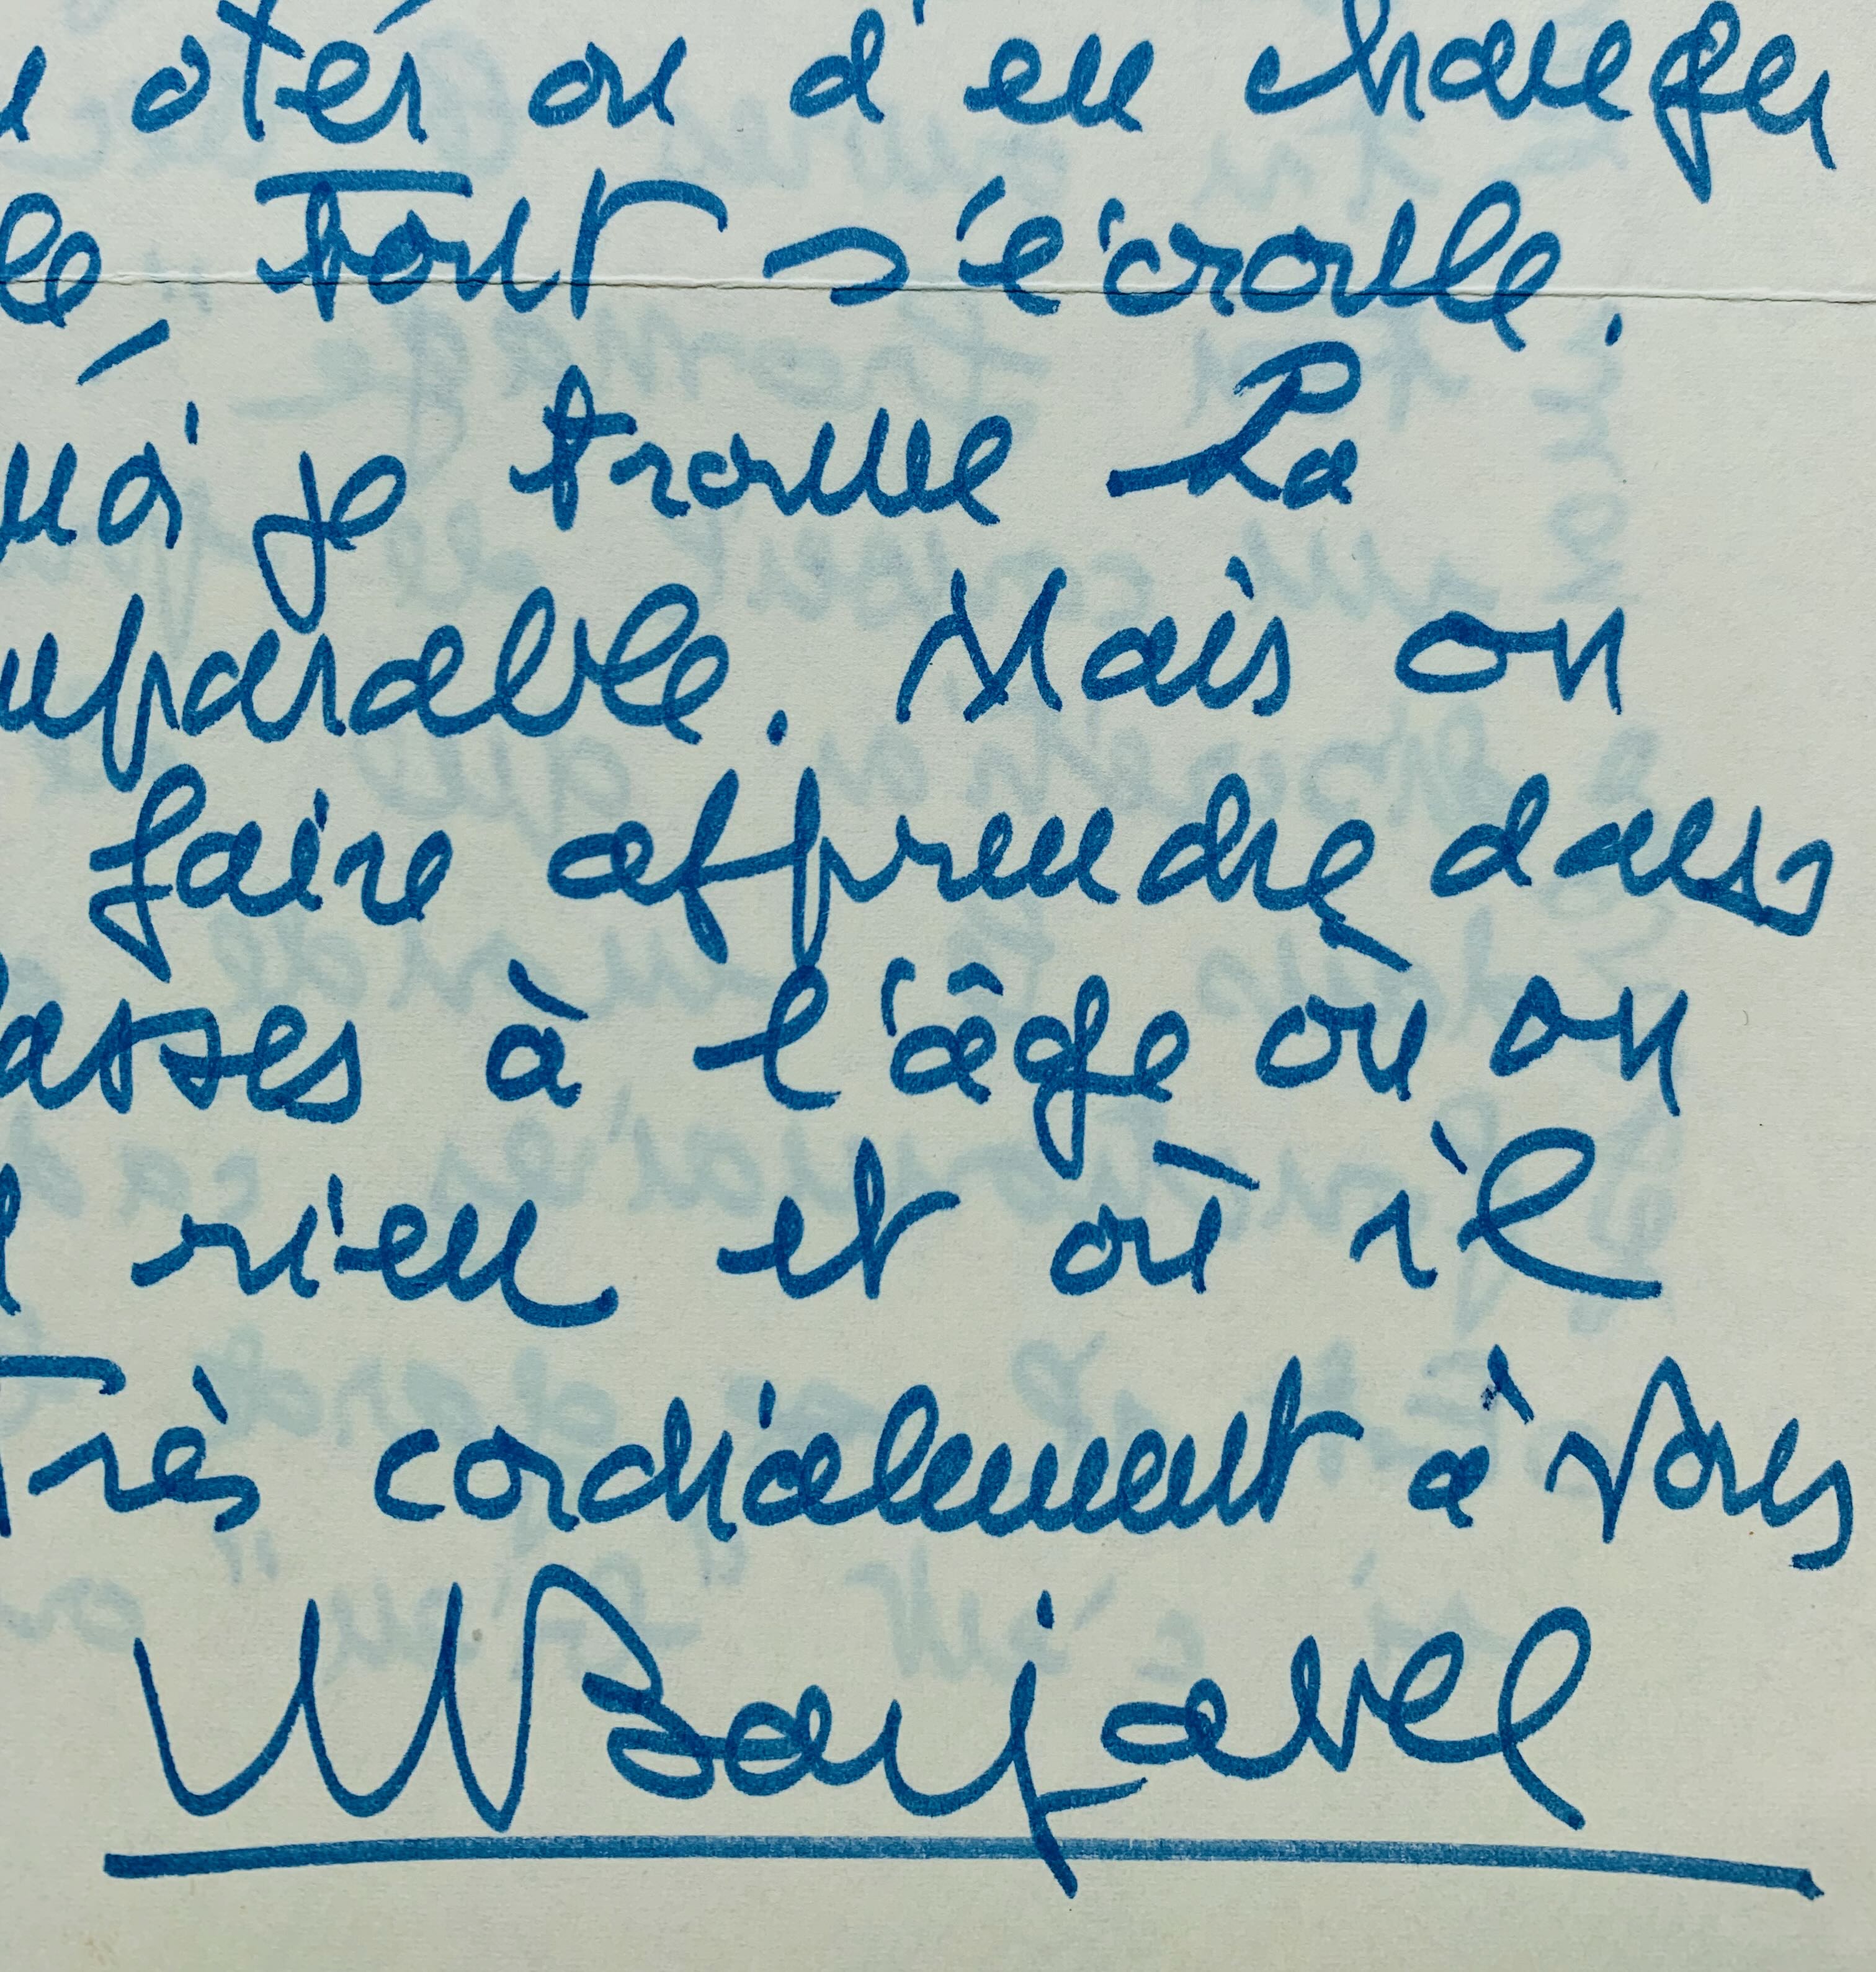 ôter ou d'en changer
tout s'écroule.
je trouve La
mparable. Mais on
faire apprendre dans
lasses à l'âge où on
rien et où il
Très cordialement à vous
Barjavel